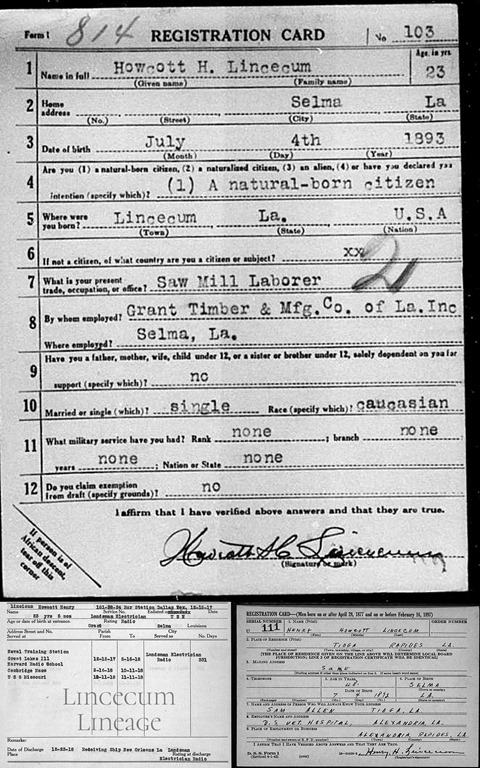 Form 1 814 REGISTRATION CARD No 103
1 Name in full Howcott H. Lincecum Age, in yrs. 23
(Given name) (Family name)
2 Home address Selma La
(No.) (Street) (City) (State)
3 Date of birth July 4th 1893
(Month) (Day) (Year)
4 Are you (1) a natural-born citizen, (2) a naturalized citizen, (3) an alien, (4) or have you declared your
intention (specify which)? (1) A natural-born citizen
5 Where were you born? Lincecum La. U.S.A
(Town) (State) (Nation)
6 If not a citizen, of what country are you a citizen or subject? xx
7 What is your present trade, occupation, or office? Saw Mill Laborer 21
8 By whom employed? Grant Timber & Mfg.Co. of La.Inc
Where employed? Selma, La.
9 Have you a father, mother, wife, child under 12, or a sister or brother under 12, solely dependent on you for
support (specify which)? no
10 Married or single (which)? single Race (specify which)? caucasian
11 What military service have you had? Rank none ; branch none
years none ; Nation or State none
12 Do you claim exemption from draft (specify grounds)? no
I affirm that I have verified above answers and that they are true.
Howcott H Lincecum
(Signature or mark)
If person is of
African descent,
tear off this
corner
Lincecum Howcott Henry 161-88-84 Rur Station Dallas Tex. 12-15-17
Name
23 yrs 5 mos Landsman Electrician
Age or date of birth at entrance Rating Radio U S N
Grant Selma Louisiana
Address Street and No. Parish City State
Served at From To Served as
Naval Training Station
Great Lakes Ill Landsman Electrician
Harvard Radio School Radio
Cambridge Mass
U S S Missouri
Lincecum
Lineage
Remarks:
Date of Discharge Receiving Ship New Orleans La Landsman
Place Rating at discharge
Electrician Radio
REGISTRATION CARD—(Men born on or after April 28, 1877 and on or before February 16, 1897)
SERIAL NUMBER 1. NAME (Print) ORDER NUMBER
U 111 HENRY HOWCOTT LINCECUM
2. PLACE OF RESIDENCE (Print)
TIOGA RAPIDES LA
(THE PLACE OF RESIDENCE GIVEN ON THE LINE ABOVE WILL DETERMINE LOCAL BOARD
JURISDICTION; LINE 2 OF REGISTRATION CERTIFICATE WILL BE IDENTICAL)
3. MAILING ADDRESS
Same
4. TELEPHONE 5. AGE IN YEARS 6. PLACE OF BIRTH
SELMA
DATE OF BIRTH
7 4 LA
7. NAME AND ADDRESS OF PERSON WHO WILL ALWAYS KNOW YOUR ADDRESS
SAM ALLEN TIOGA, LA
8. EMPLOYER'S NAME AND ADDRESS
U.S. VET. HOSPITAL, ALEXANDRIA LA.
9. PLACE OF EMPLOYMENT OR BUSINESS
ALEXANDRIA RAPIDES LA
I AFFIRM THAT I HAVE VERIFIED ABOVE ANSWERS AND THAT THEY ARE TRUE.
D. S. S. Form 1 Henry H. Lincecum